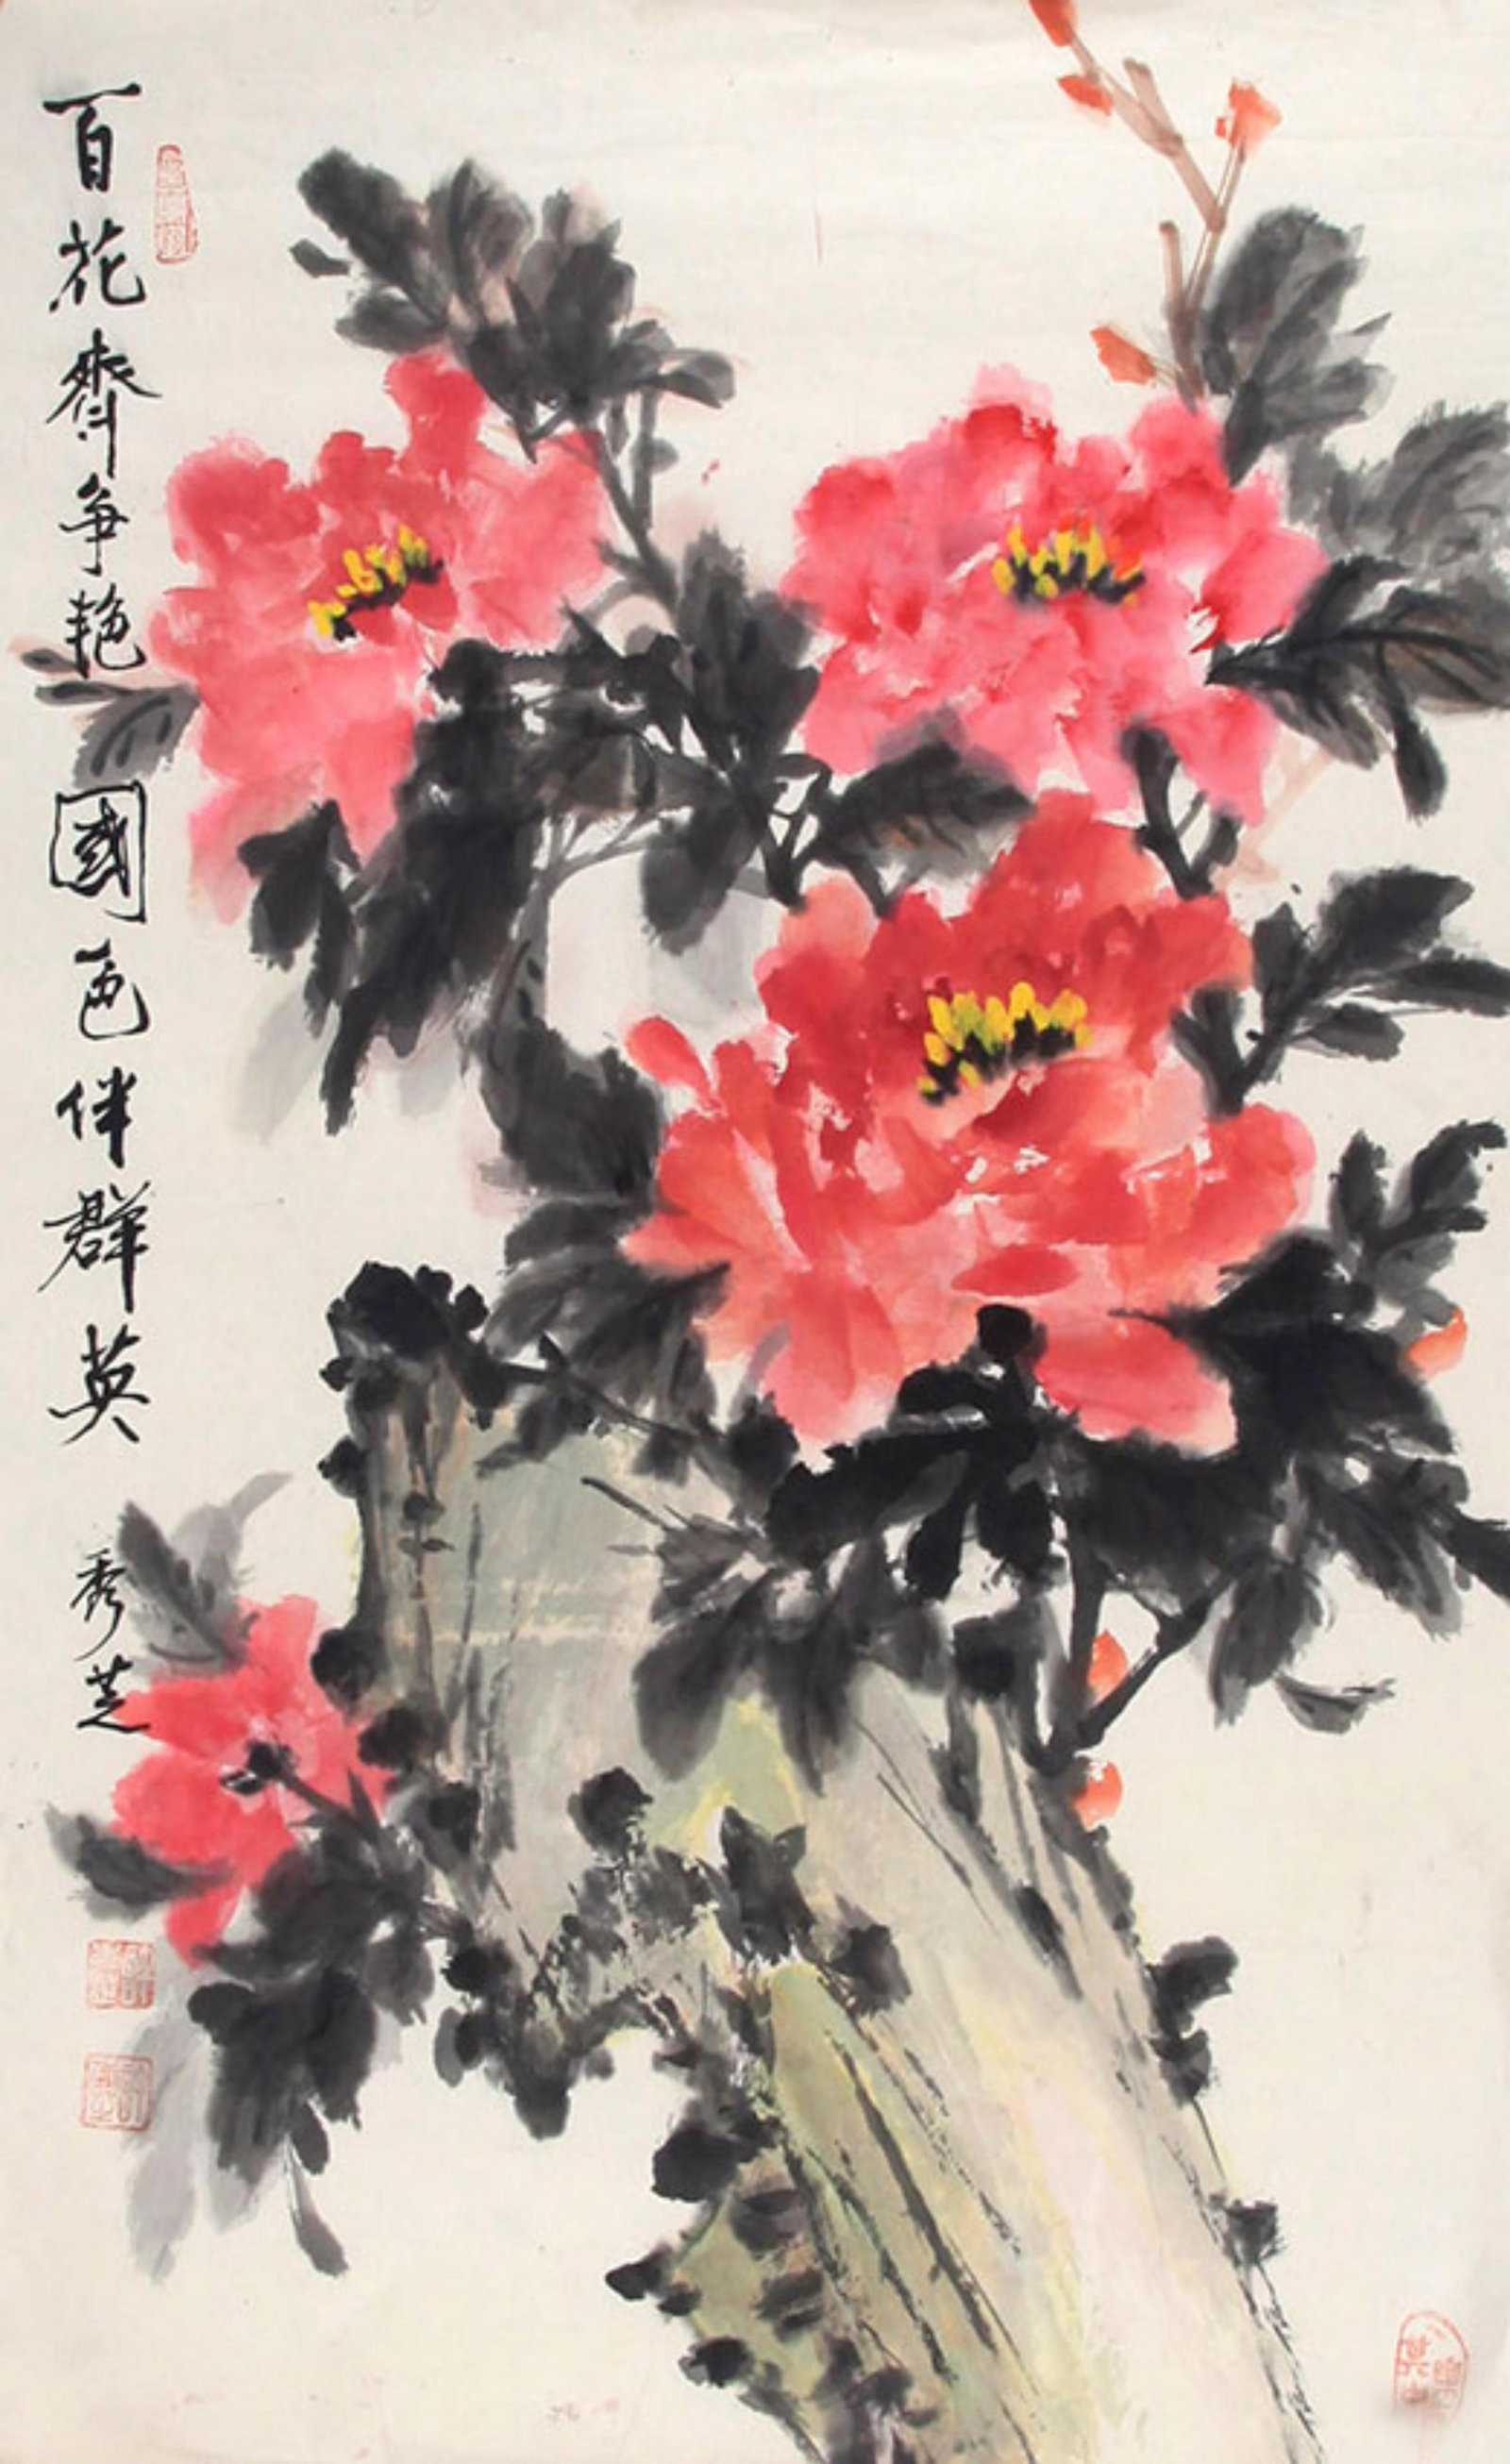 百花齊争艳國色伴群英
秀芝